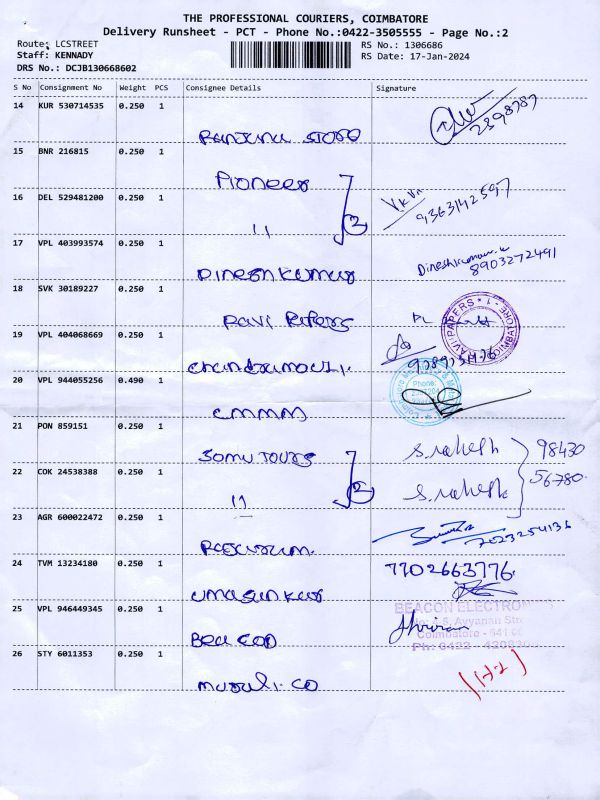 THE PROFESSIONAL COURIERS, COIMBATORE
Delivery Runsheet - PCT - Phone No.:0422-3505555 - Page No.:2
Route: LCSTREET
Staff: KENNADY
DRS No.: DCJB130668602
RS No.: 1306686
RS Date: 17-Jan-2024
S No Consignment No Weight PCS Consignee Details Signature
14 KUR 530714535 0.250 1
Ranjana Store
2898787
15 BNR 216815 0.250 1
Pioneer
16 DEL 529481200 0.250 1
11 2
9363142597
17 VPL 403993574 0.250 1
Dineshkumar
Dineshkumar.k
8903272491
18 SVK 30189227 0.250 1
Ravi Papers
RAVI PAPERS
19 VPL 404068669 0.250 1
Chandramouli.
20 VPL 944055256 0.490 1
CMMM
Phone:
21 PON 859151 0.250 1
Somu Tours
S.rakesh 98430
22 COK 24538388 0.250 1
11 2
S.rakesh 56780
23 AGR 600022472 0.250 1
7023254136
24 TVM 13234180 0.250 1
Umasankar
7702663776.
25 VPL 946449345 0.250 1
Beacon
BEACON ELECTRO
Ayyanan Stre
Coimbatore - 641 0
Ph: 0422 -
26 STY 6011353 0.250 1
Murali. Co